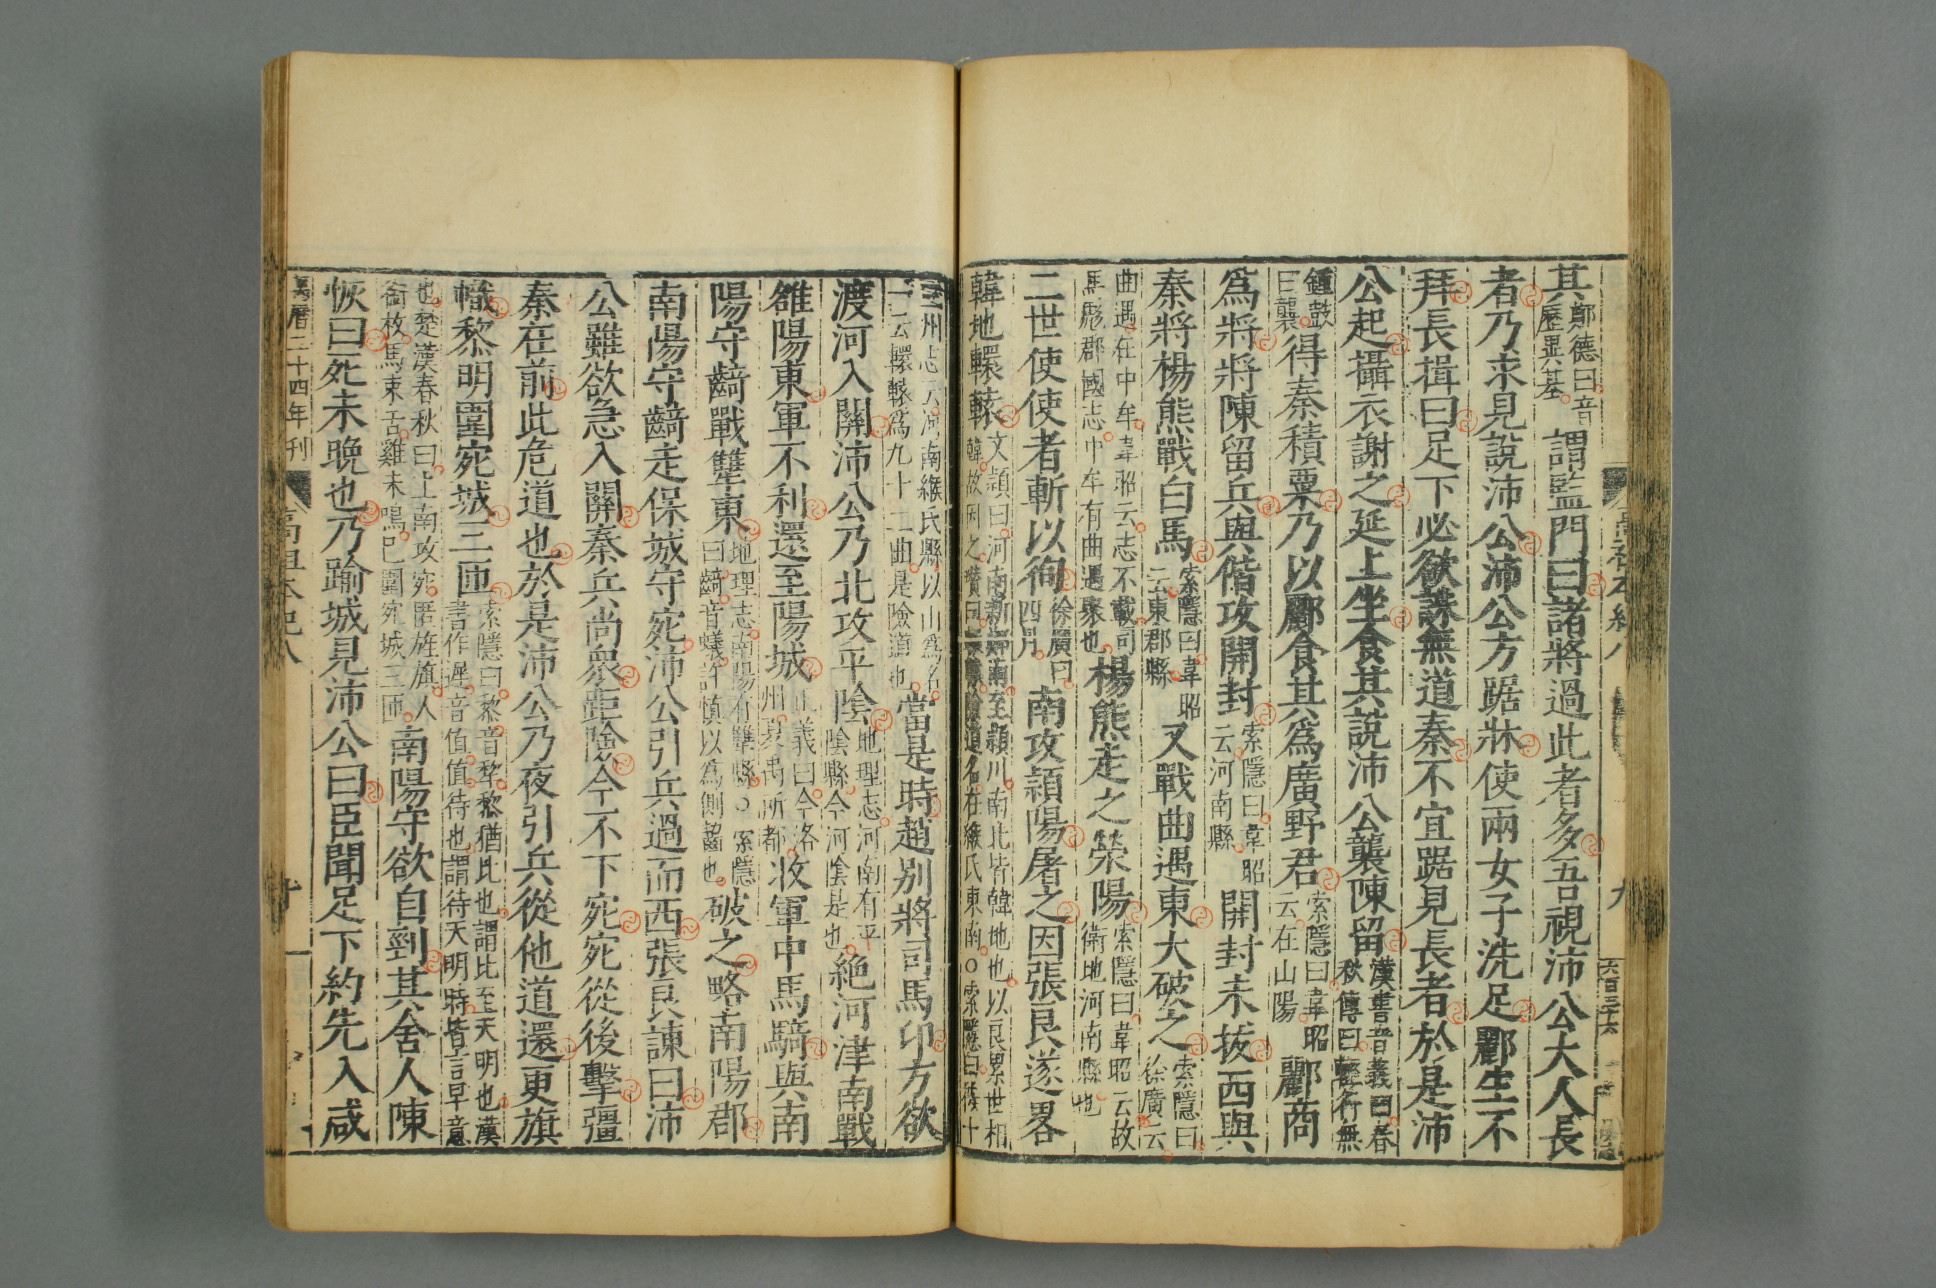 其鄭德曰音歷異基謂監門曰諸將過此者多吾視沛公大人長
者乃求見說沛公沛公方踞牀使兩女子洗足酈生不
拜長揖曰足下必欲誅無道秦不宜踞見長者於是沛
公起攝衣謝之延上坐食其說沛公襲陳留漢書音義曰春秋傳曰輕行無
鍾鼓曰襲得秦積粟乃以酈食其爲廣野君索隱曰韋昭云在山陽酈商
爲將將陳留兵與偕攻開封索隱曰韋昭云河南縣開封未拔西與
秦將楊熊戰白馬索隱曰韋昭云東郡縣又戰曲遇東大破之索隱曰徐廣云
曲遇在中牟韋昭云志不載司馬彪郡國志中牟有曲遇聚也楊熊走之滎陽索隱曰韋昭云故衛地河南縣也
二世使使者斬以徇徐廣曰四月南攻潁陽屠之因張良遂畧
韓地轘轅文穎曰河南新鄭南至潁川南北皆韓地也以良累世相韓故因之瓚曰道名在緱氏東南○索隱曰十
三州志云河南緱氏縣以山爲名一云轘轅爲九十二曲是險道也當是時趙别將司馬卬方欲
渡河入關沛公乃北攻平陰地理志河南有平陰縣今河陰是也絶河津南戰
雒陽東軍不利還至陽城正義曰今洛州夏禹所都收軍中馬騎與南
陽守齮戰犨東地理志南陽有犨縣○索隱曰齮音蟻許慎以爲側齧也破之略南陽郡
南陽守齮走保城守宛沛公引兵過而西張良諫曰沛
公雖欲急入關秦兵尚衆距險今不下宛宛從後擊彊
秦在前此危道也於是沛公乃夜引兵從他道還更旗
幟黎明圍宛城三匝索隱曰黎音犂黎猶比也謂比至天明也漢書作遲音值值待也謂待天明時皆言早意
也楚漢春秋曰上南攻宛匿旌旗人銜枚馬束舌雞未鳴已圍宛城三匝南陽守欲自剄其舍人陳
恢曰死未晚也乃踰城見沛公曰臣聞足下約先入咸
萬曆二十四年刊
高祖本紀八